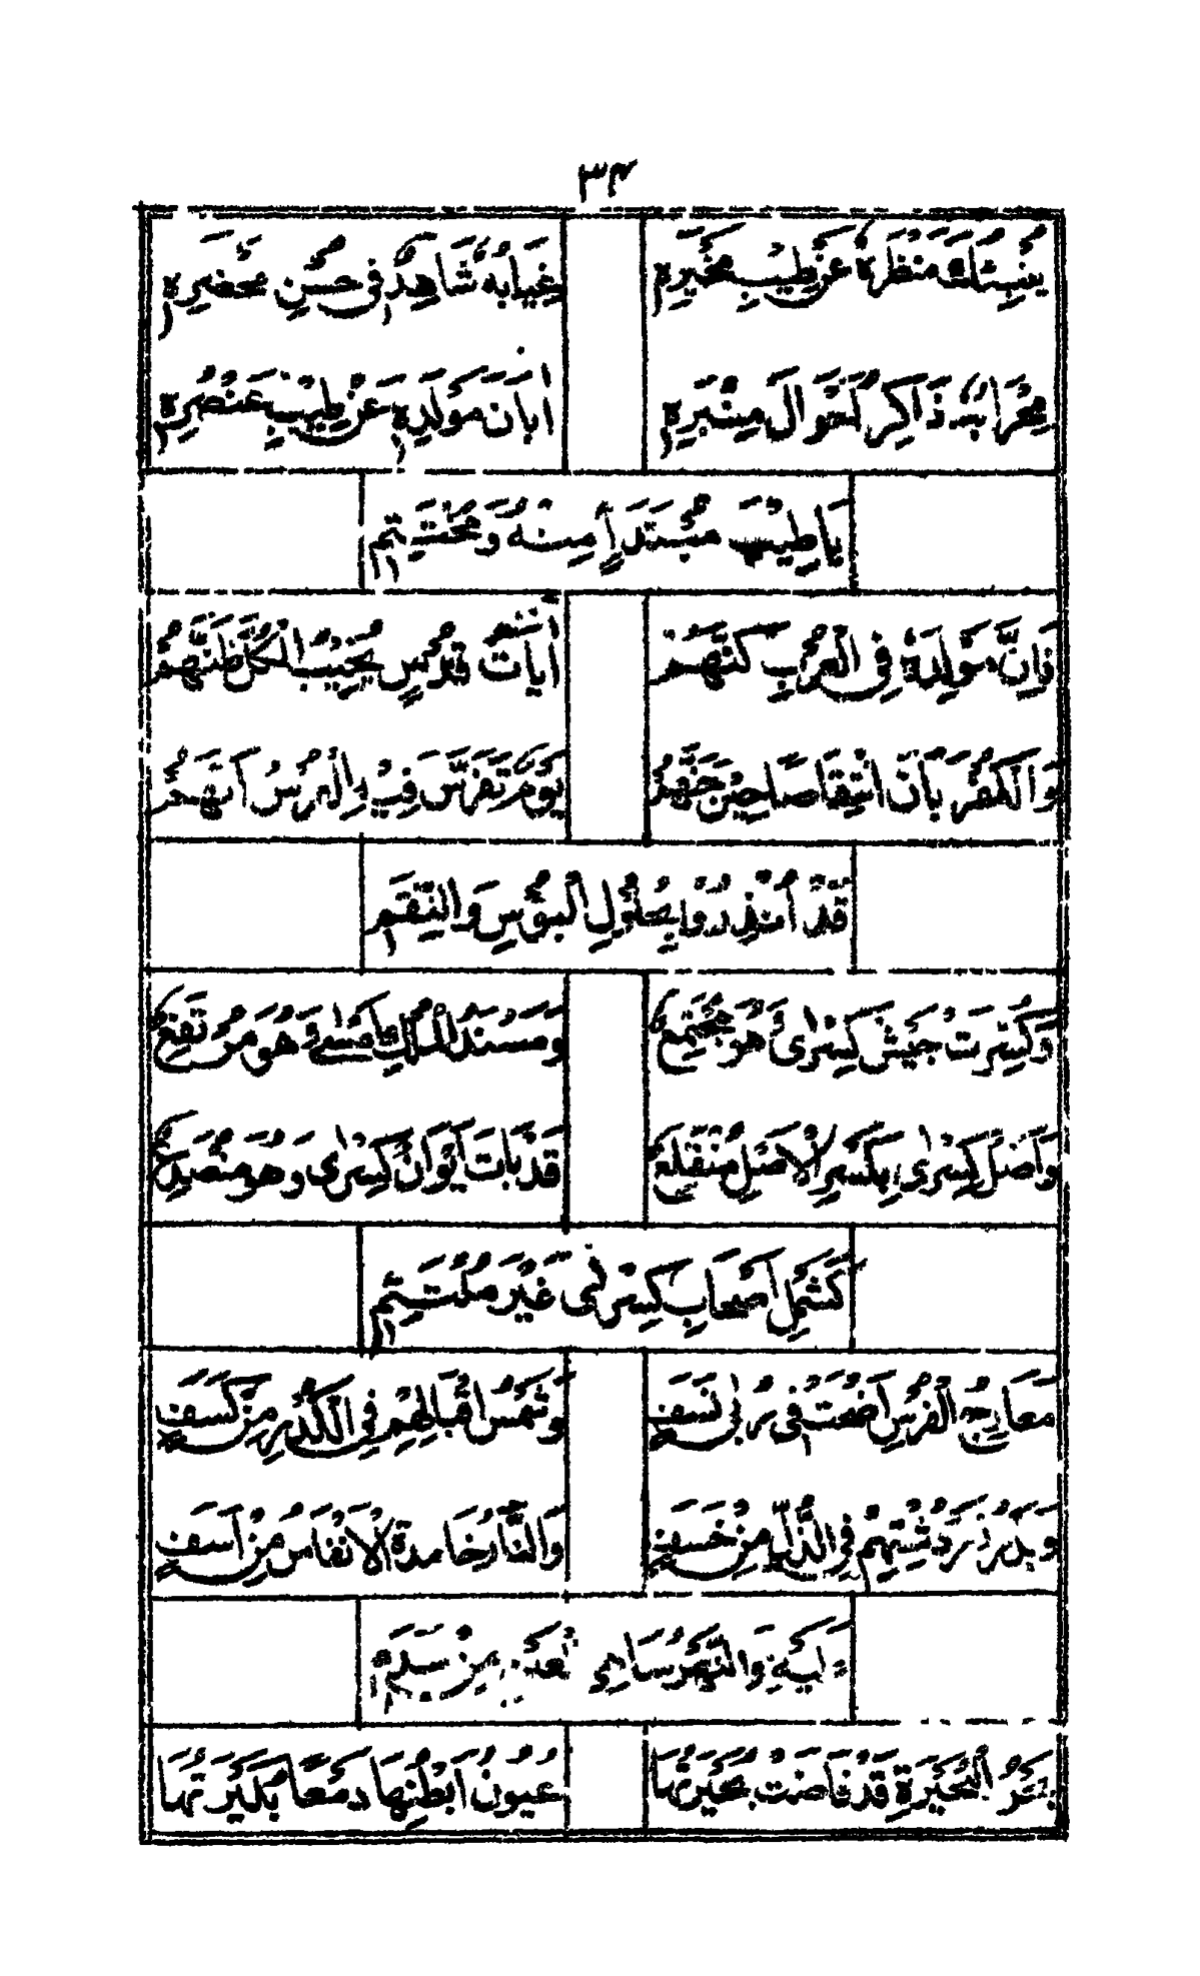 ٣٤
يُنْبِئُكَ مَنْظَرُهُ عَنْ طِيْبِ مَخْبَرِهِ غِيَابُهُ شَاهِدٌ فِي حُسْنِ مَحْضَرِهِ
ذَاكِرٌ مِنْبَرِهِ اَبَانَ مَوْلِدُهُ عَنْ طِيْبِ عُنْصُرِهِ
يَا طِيْبَ مُبْتَدَاٍ مِنْهُ وَمُخْتَتَمِ
فَاِنَّ مَوْلِدَهُ فِي الْعُرْبِ اٰيَاتُ قُدْسٍ الْكُلُّ ظَنَّهُمُ
وَالْكُفْرُ بَانَ انْتِقَاصًا حِيْنَ يَوْمٌ تَفَرَّسَ فِيْهِ الْفُرْسُ اَنَّهُمُ
قَدْ اُنْذِرُوْا بِحُلُوْلِ الْبُؤْسِ وَالنِّقَمِ
وَكُسِّرَتْ جَيْشُ كِسْرٰى هُوَ مُجْتَمِعٌ وَمَسْنَدُ الْمُلْكِ هُوَ مُرْتَفِعٌ
وَاَصْلُ كِسْرٰى بِكَسْرِ الْاَصْلِ مُنْقَلِعٌ قَدْ بَاتَ اَيْوَانُ كِسْرٰى وَهُوَ مُنْصَدِعٌ
كَشَمْلِ اَصْحَابِ كِسْرٰى غَيْرَ مُلْتَئِمِ
مَعَارِجُ الْفُرْسِ اَضْحَتْ فِي نَسَفٍ وَشَمْسُ اِقْبَالِهِمْ فِي الْكَدْرِ مِنْ كَسَفٍ
وَبَدْرُ فِي الذُّلِّ مِنْ خَسَفٍ وَالنَّارُ خَامِدَةُ الْاَنْفَاسِ مِنْ اَسَفٍ
عَلَيْهِ وَالنَّهْرُ سَاهِي الْعَيْنِ مِنْ سَدَمِ
الْبُحَيْرَةِ قَدْ غَاضَتْ بُحَيْرَتُهَا عُيُوْنُ اَبْطُنِهَا دَمْعًا